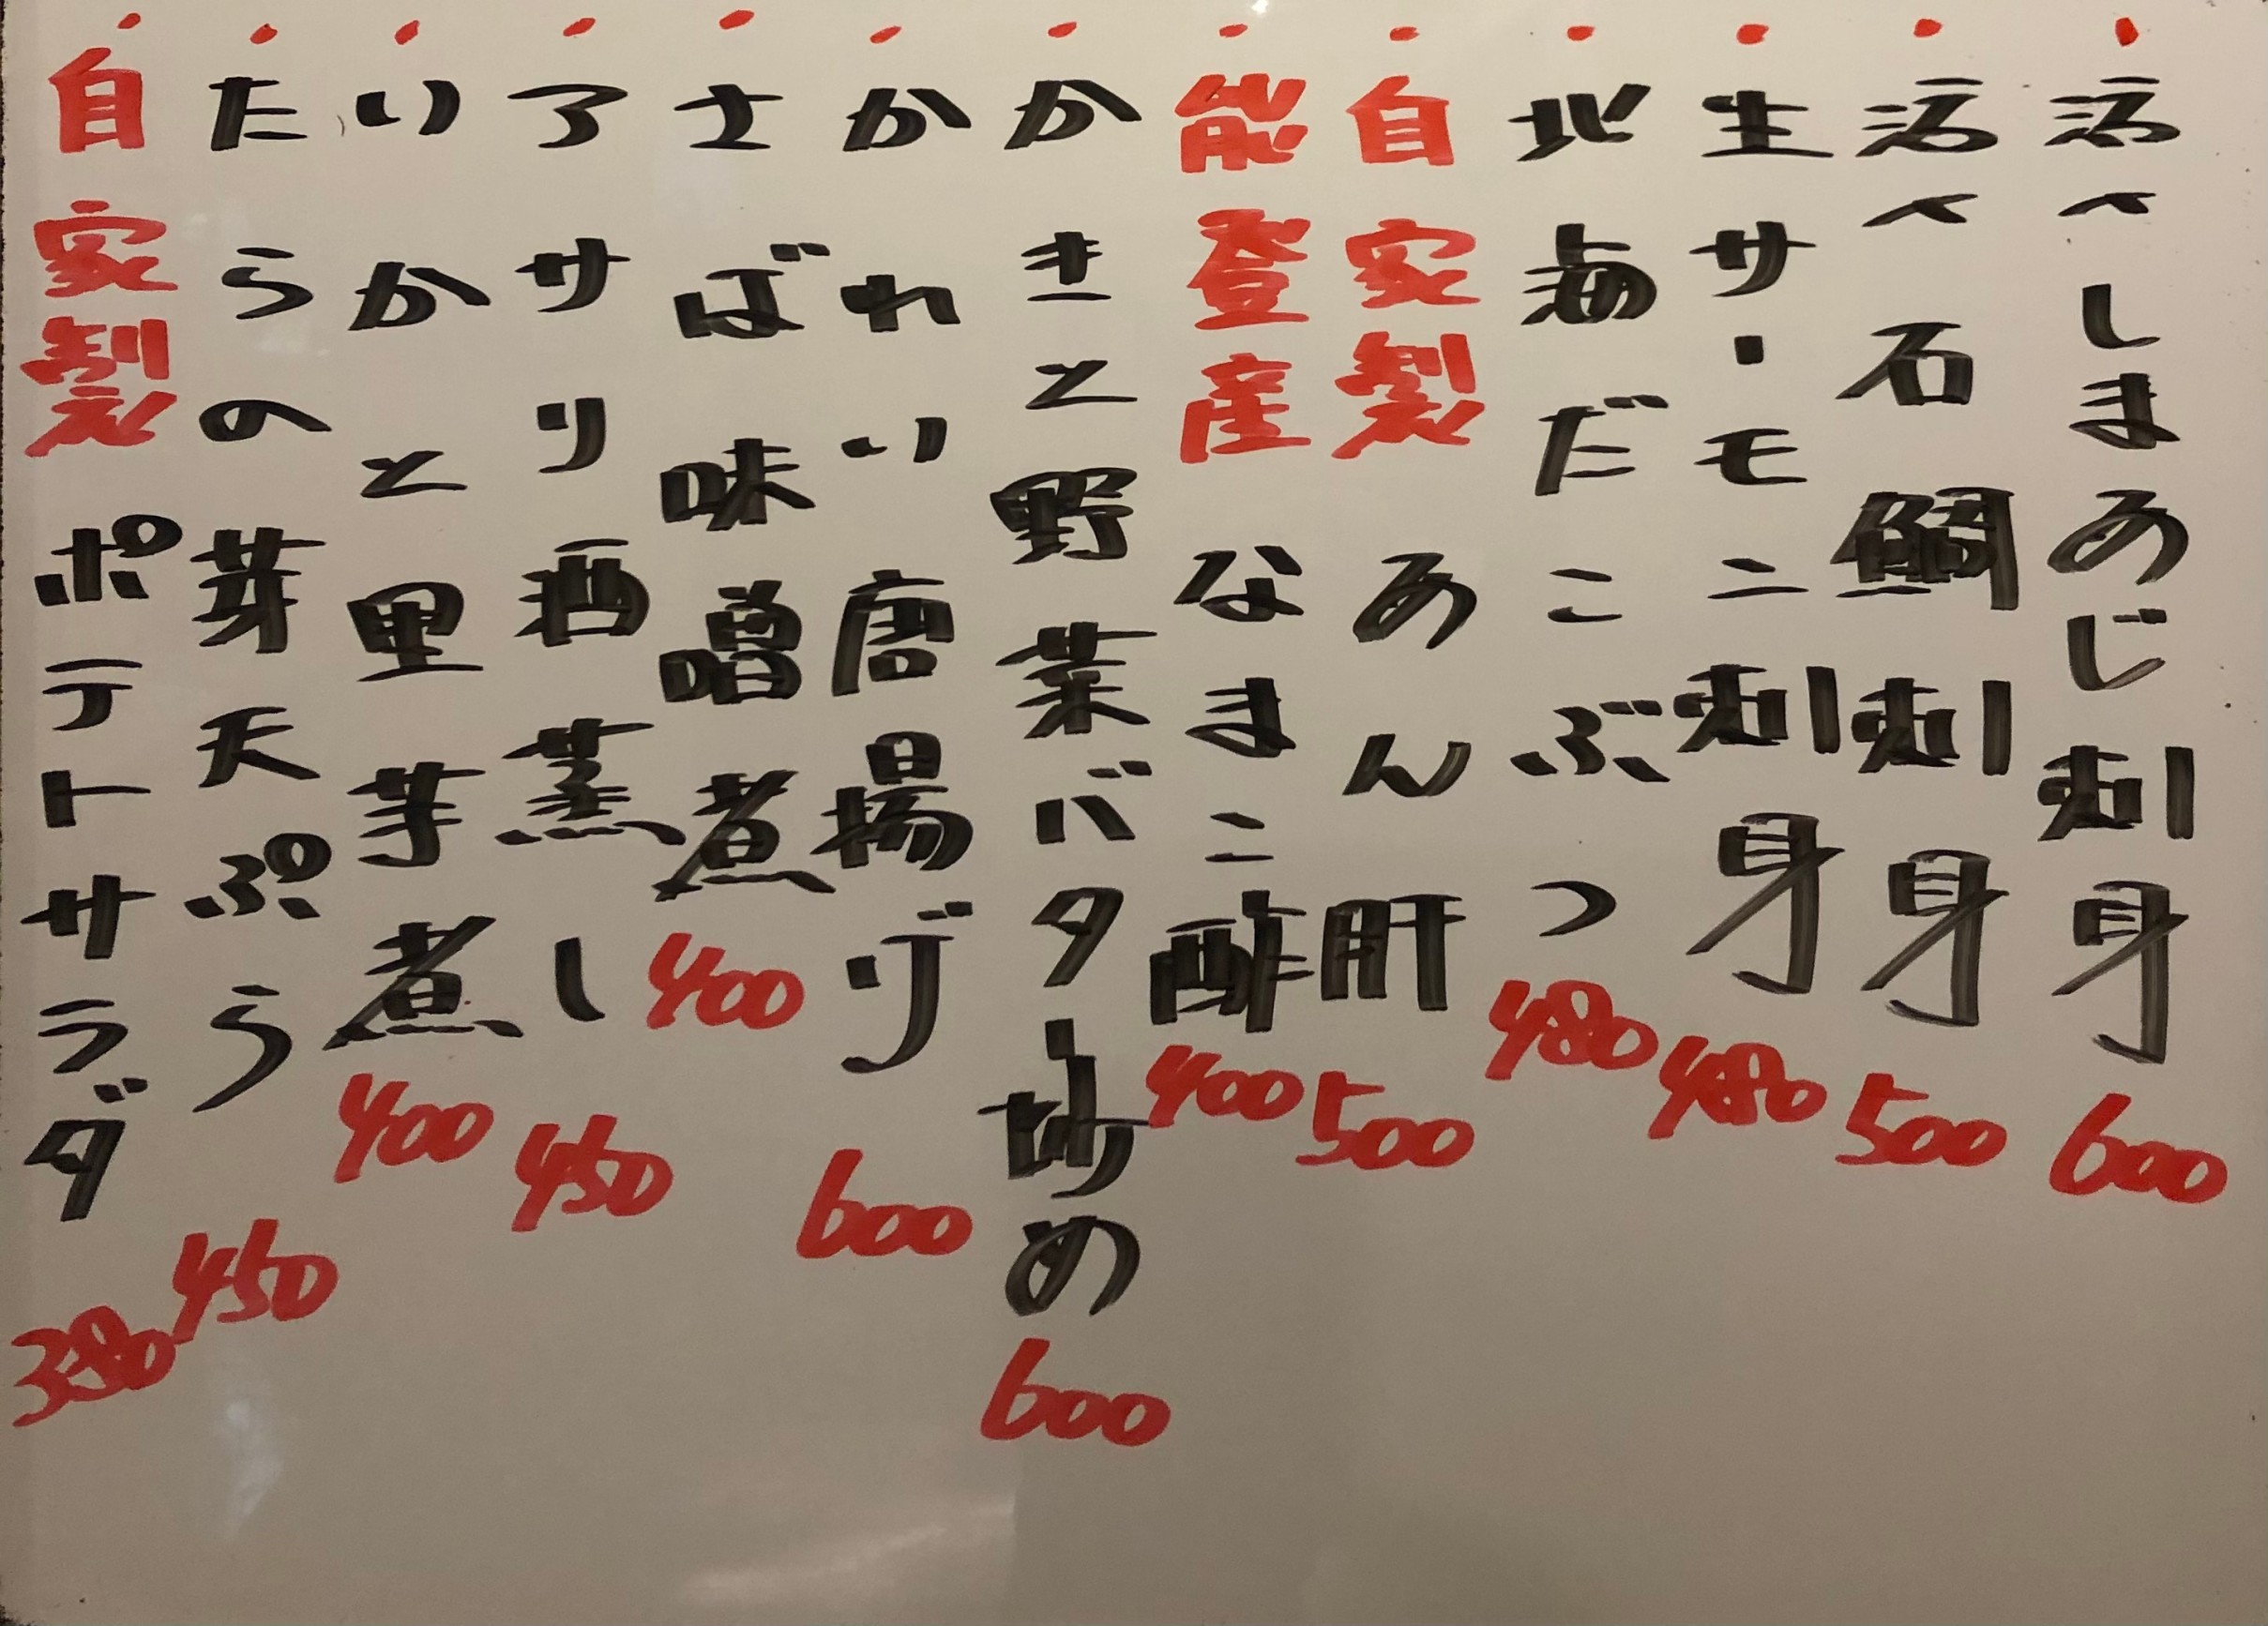 ・活〆しまあじ刺身 600
・活〆石鯛刺身 500
・生サーモン刺身 480
・北海だこぶつ 480
・自家製 あん肝 500
・能登産 なまこ酢 400
・かきと野菜バター炒め 600
・かれい唐揚げ 600
・さば味噌煮 400
・アサリ酒蒸し 450
・いかと里芋煮 400
・たらの芽天ぷら 450
・自家製 ポテトサラダ 380